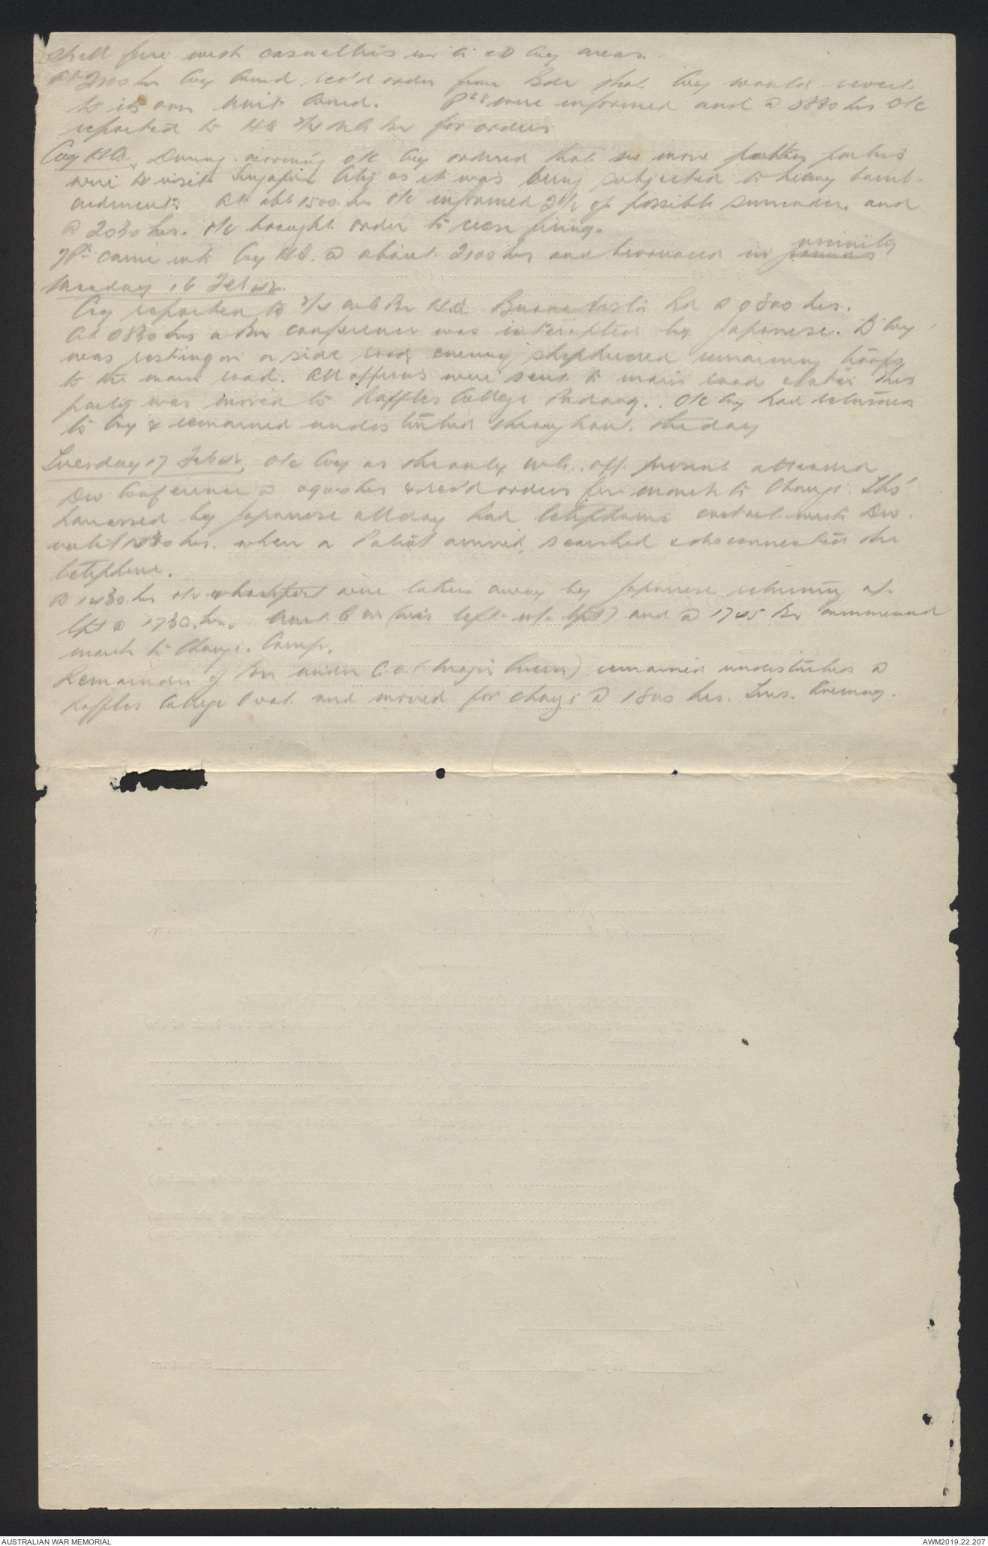 shell fire with casualties in C & D Coy areas.
At 2100 hrs Coy Comd rec'd order from Bde that Coy would revert
to its own Unit Comd. Pls were informed and @ 0830 hrs O/C
reported to HQ 2/4 M.G. Bn for orders
Coy H.Q. During morning O/C Coy ordered that no more parties
were to visit Singapore City as it was being subjected to heavy bomb-
ardment. At abt 1500 hrs O/C informed of possible surrender and
@ 2030 hrs. O/C brought order to cease firing.
Pl came into Coy HQ. @ about 2100 hrs and bivouaced in vicinity
Monday 16 Feb 42.
Coy reported to 2/4 M.G. Bn H.Q. Buona Vista Rd @ 0800 hrs.
At 0830 hrs a Bn conference was interrupted by Japanese. B Coy
was resting on a side road, enemy shepherded remaining troops
to the main road. All officers were sent to main road & later this
party was moved to Raffles College Padang. O/C Coy had returned
to Coy & remained undisturbed throughout the day
Tuesday 17 Feb 42, O/C Coy as the only M.G. off. present attended
Div Conference @ 0900 hrs & rec'd orders for march to Changi. Tho'
harassed by Japanese all day had telephone contact with Div.
until 1230 hrs. when a Patrol arrived, searched & disconnected the
telephone.
@ 1430 hrs O/C & were taken away by Japanese returning at
@ 1730 hrs. and @ 1745 hrs commenced
march to Changi. Camp.
Remainder of Bn under C.O. (Major Green) remained undisturbed @
Raffles College Oval and moved for Changi @ 1800 hrs. Tues. Evening.
AUSTRALIAN WAR MEMORIAL
AWM2019.22.207